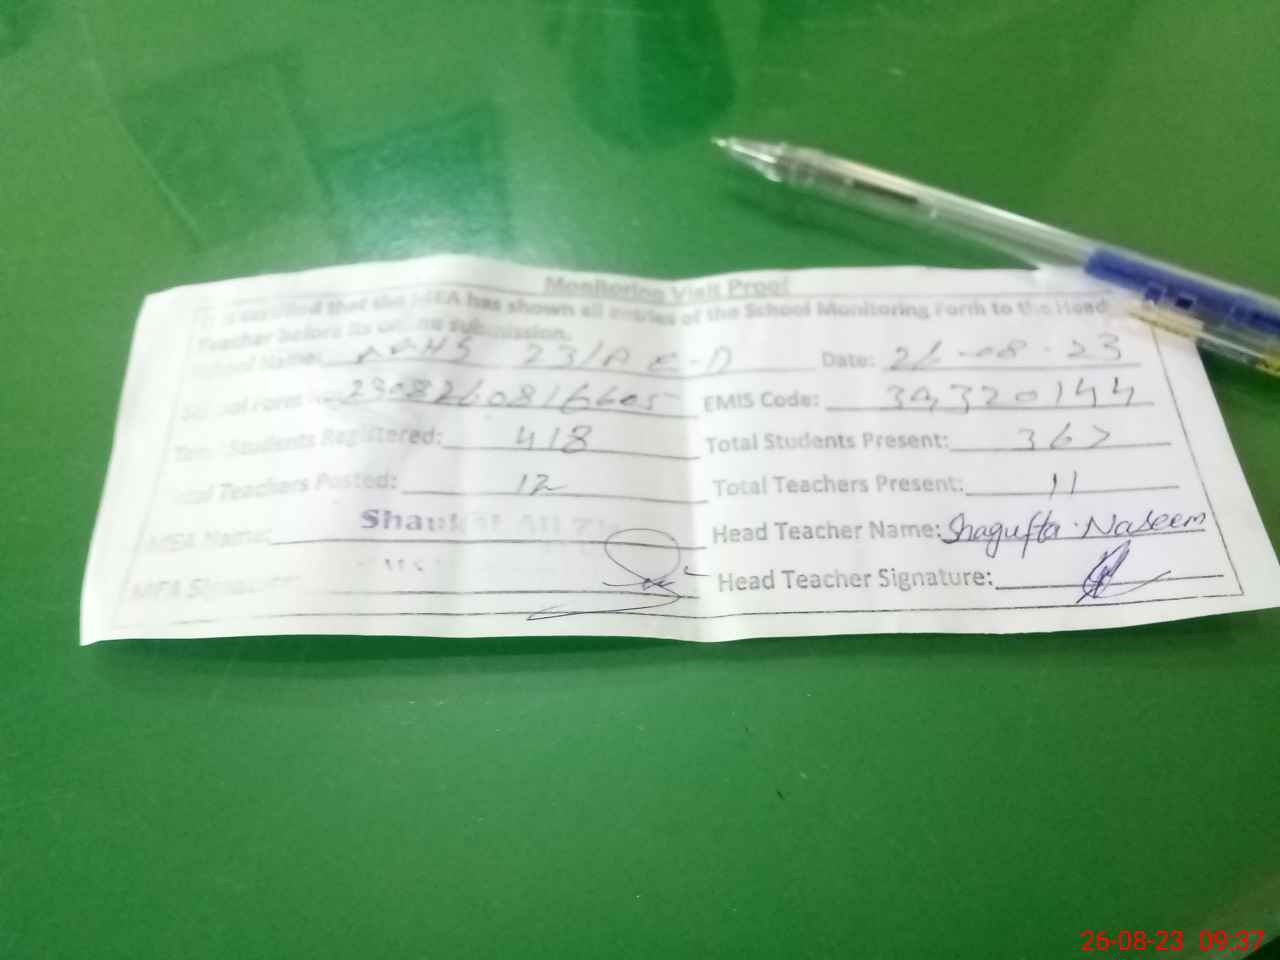 Monitoring Visit Proof
It is certified that the MEA has shown all entries of the School Monitoring Form to the Head
Teacher before its online submission.
School Name: 231A E-D Date: 26-08-23
School Form EMIS Code: 39320144
Total Students Registered: 418 Total Students Present: 367
Total Teachers Posted: 12 Total Teachers Present: 11
MEA Name: Head Teacher Name: Shagufta Naseem
MEA Signature: Head Teacher Signature:
26-08-23 09:37